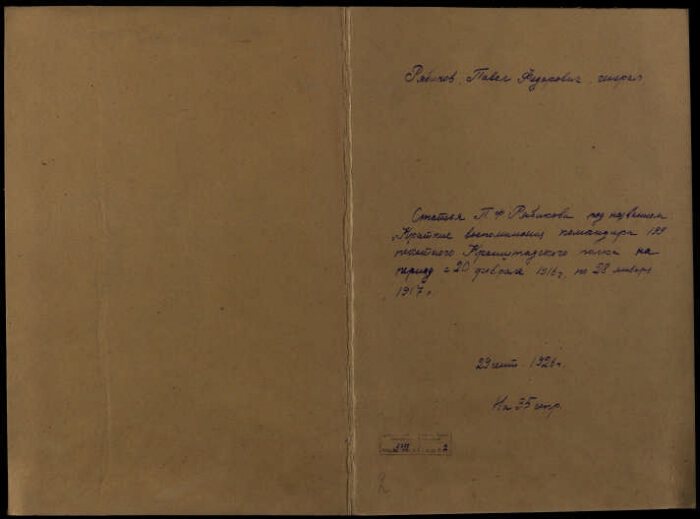 Рябиков Павел Федорович генерал
Статья П Ф Рябикова под названием
"Краткие воспоминания командира 199
пехотного Кронштадского полка на
период с 20 февраля 1916 г. по 28 января
1917 г.
1926 г.
На 35 стр.
2